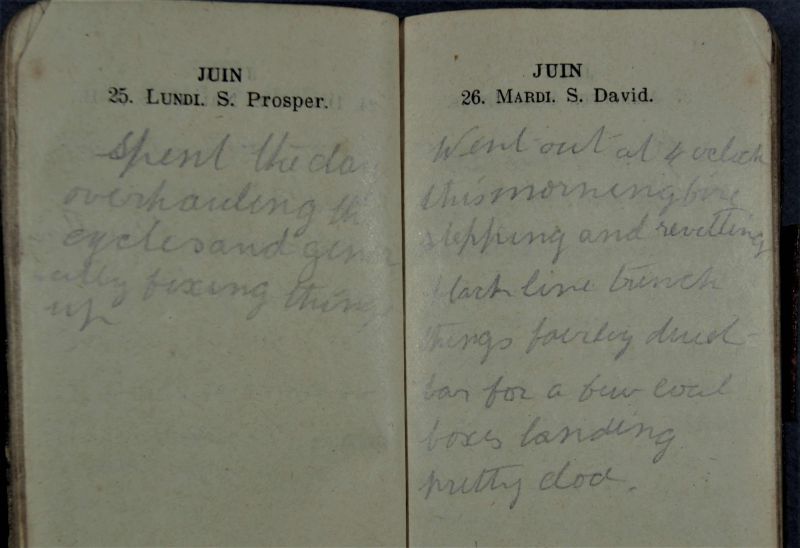 JUIN
25. LUNDI. S. Prosper.
Spent the day
overhauling th
cycles and gener
ally fixing things
up
JUIN
26. MARDI. S. David.
Went out at 4 oclock
this morning
stepping and revetting
line trench
things fairly
bar for a few coal
boxes landing
pretty